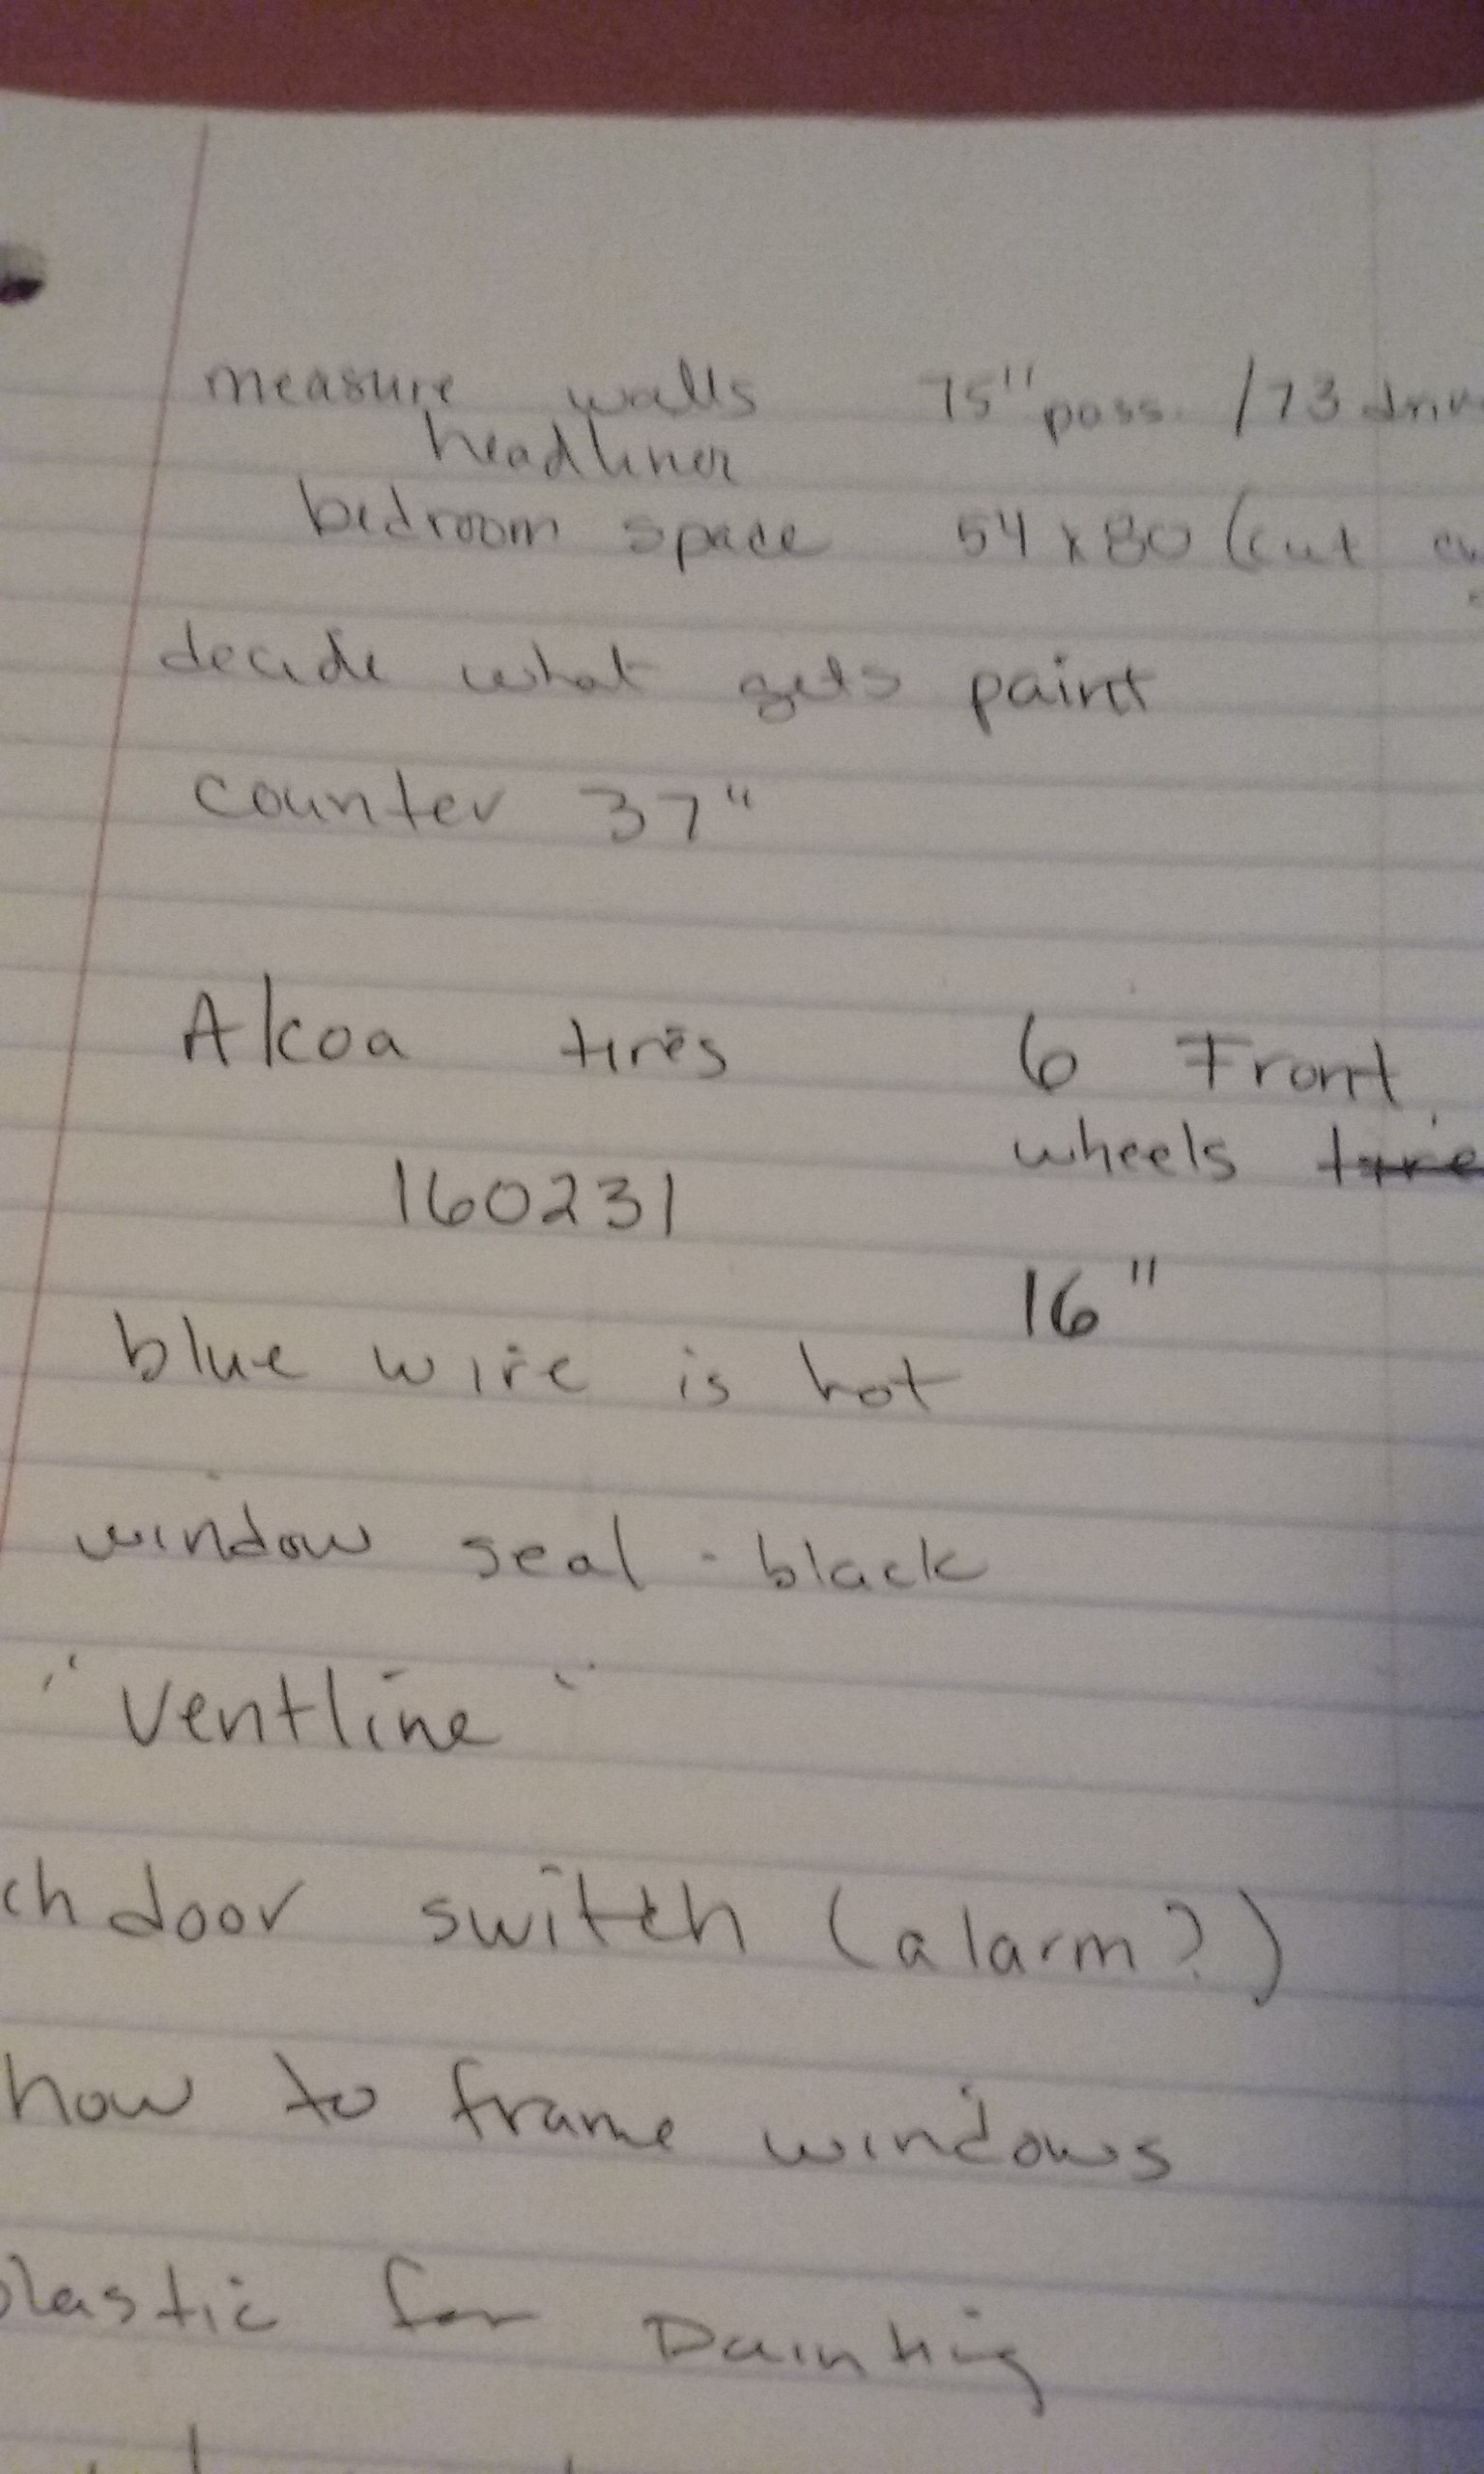 measure walls 75" pass. /73 driv
headliner
bedroom space 54 x 80 (cut
decide what gets paint
counter 37"
Alcoa tires 6 Front
wheels tire
160231
16"
blue wire is hot
window seal - black
"Ventline"
ch door switch (alarm?)
how to frame windows
plastic for Painting